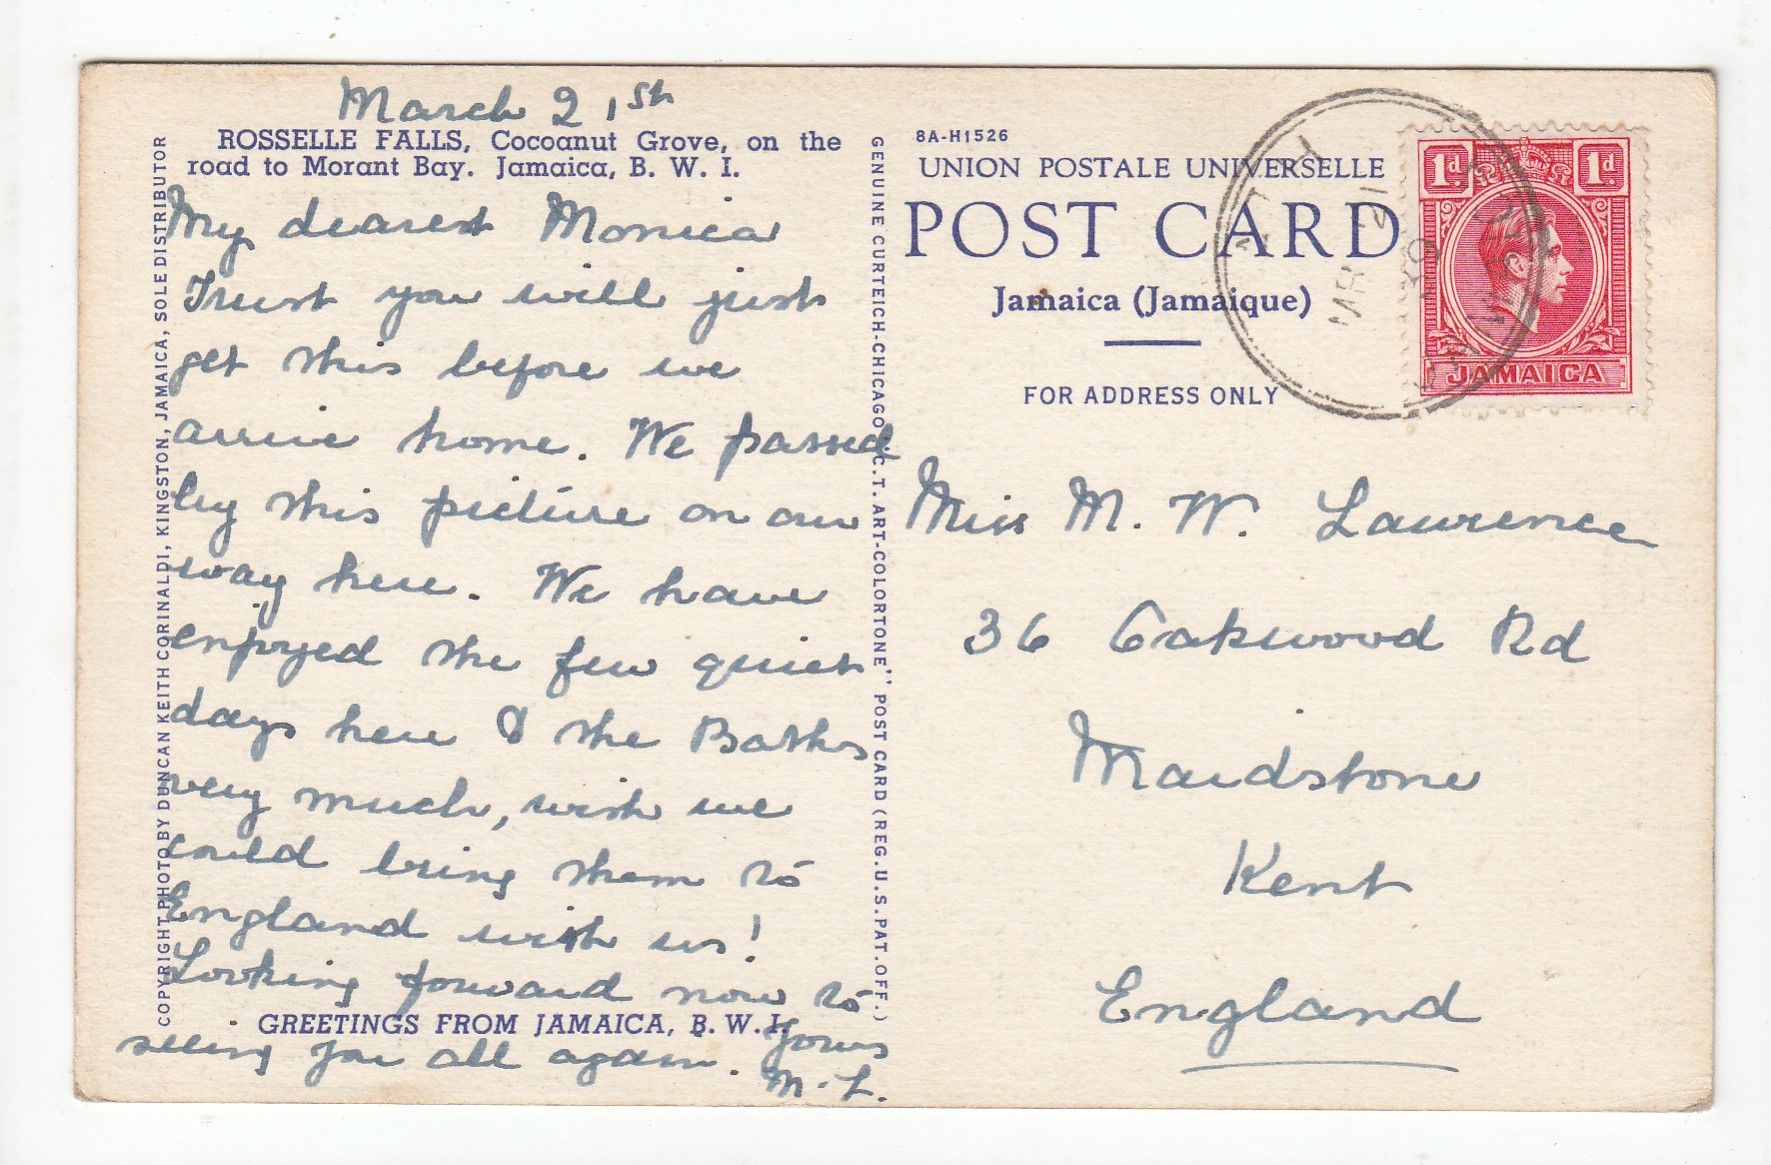 March 21st
ROSSELLE FALLS, Cocoanut Grove, on the
road to Morant Bay. Jamaica, B. W. I.
My dearest Monica
Trust you will just
get this before we
arrive home. We passed
by this picture on our
way here. We have
enjoyed the few quiet
days here & the Baths
very much, wish we
could bring them to
England with us!
Looking forward now to
GREETINGS FROM JAMAICA, B. W. I.
seeing you all again. Yours
M. L.
COPYRIGHT PHOTO BY DUNCAN KEITH CORINALDI, KINGSTON, JAMAICA, SOLE DISTRIBUTOR
GENUINE CURTEICH-CHICAGO "C.T. ART-COLORTONE" POST CARD (REG. U.S. PAT. OFF.)
8A-H1526
UNION POSTALE UNIVERSELLE
POST CARD
Jamaica (Jamaique)
FOR ADDRESS ONLY
BATH
MAR 21
39
1d 1d
JAMAICA
Miss M. W. Lawrence
36 Oakwood Rd
Maidstone
Kent
England